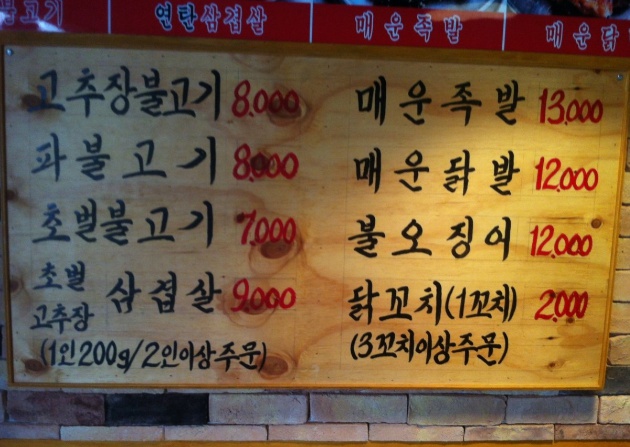 불고기 연탄삼겹살 매운족발 매운닭
고추장불고기 8,000
파불고기 8,000
초벌불고기 7,000
초벌고추장 삼겹살 9,000
(1인 200g/2인이상주문)
매운족발 13,000
매운닭발 12,000
불오징어 12,000
닭꼬치(1꼬치) 2,000
(3꼬치이상주문)